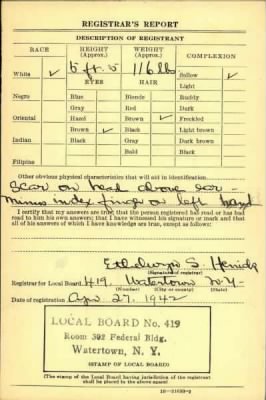 REGISTRAR'S REPORT
DESCRIPTION OF REGISTRANT
RACE HEIGHT (Approx.) WEIGHT (Approx.) COMPLEXION
White ✓ 5 ft 5 116 lbs Sallow ✓
EYES HAIR Light
Negro Blue Blonde Ruddy
Gray Red Dark
Oriental Hazel Brown ✓ Freckled
Brown ✓ Black Light brown
Indian Black Gray Dark brown
Bald Black
Filipino
Other obvious physical characteristics that will aid in identification
Scar on head above ear -
Minus index finger on left hand
I certify that my answers are true; that the person registered has read or has had
read to him his own answers; that I have witnessed his signature or mark and that
all of his answers of which I have knowledge are true, except as follows:
S.
(Signature of registrar)
Registrar for Local Board 419 Watertown N.Y.
(Number) (City or county) (State)
Date of registration Apr. 27, 1942
LOCAL BOARD No. 419
Room 302 Federal Bldg.
Watertown, N. Y.
(STAMP OF LOCAL BOARD)
(The stamp of the Local Board having jurisdiction of the registrant
shall be placed in the above space.)